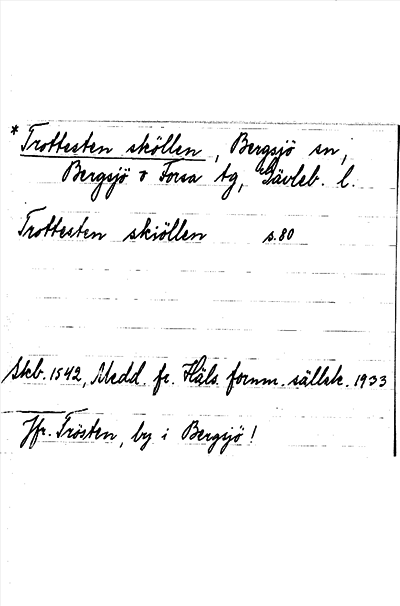 * Trottesten sköllen, Bergsjö sn,
Bergsjö o Forsa tg, Gävleb. l.
Trottesten skiöllen s. 80
Skb. 1542, Medd. fr. Häls. fornm. sällsk. 1933
Jfr. Trösten, by i Bergsjö!